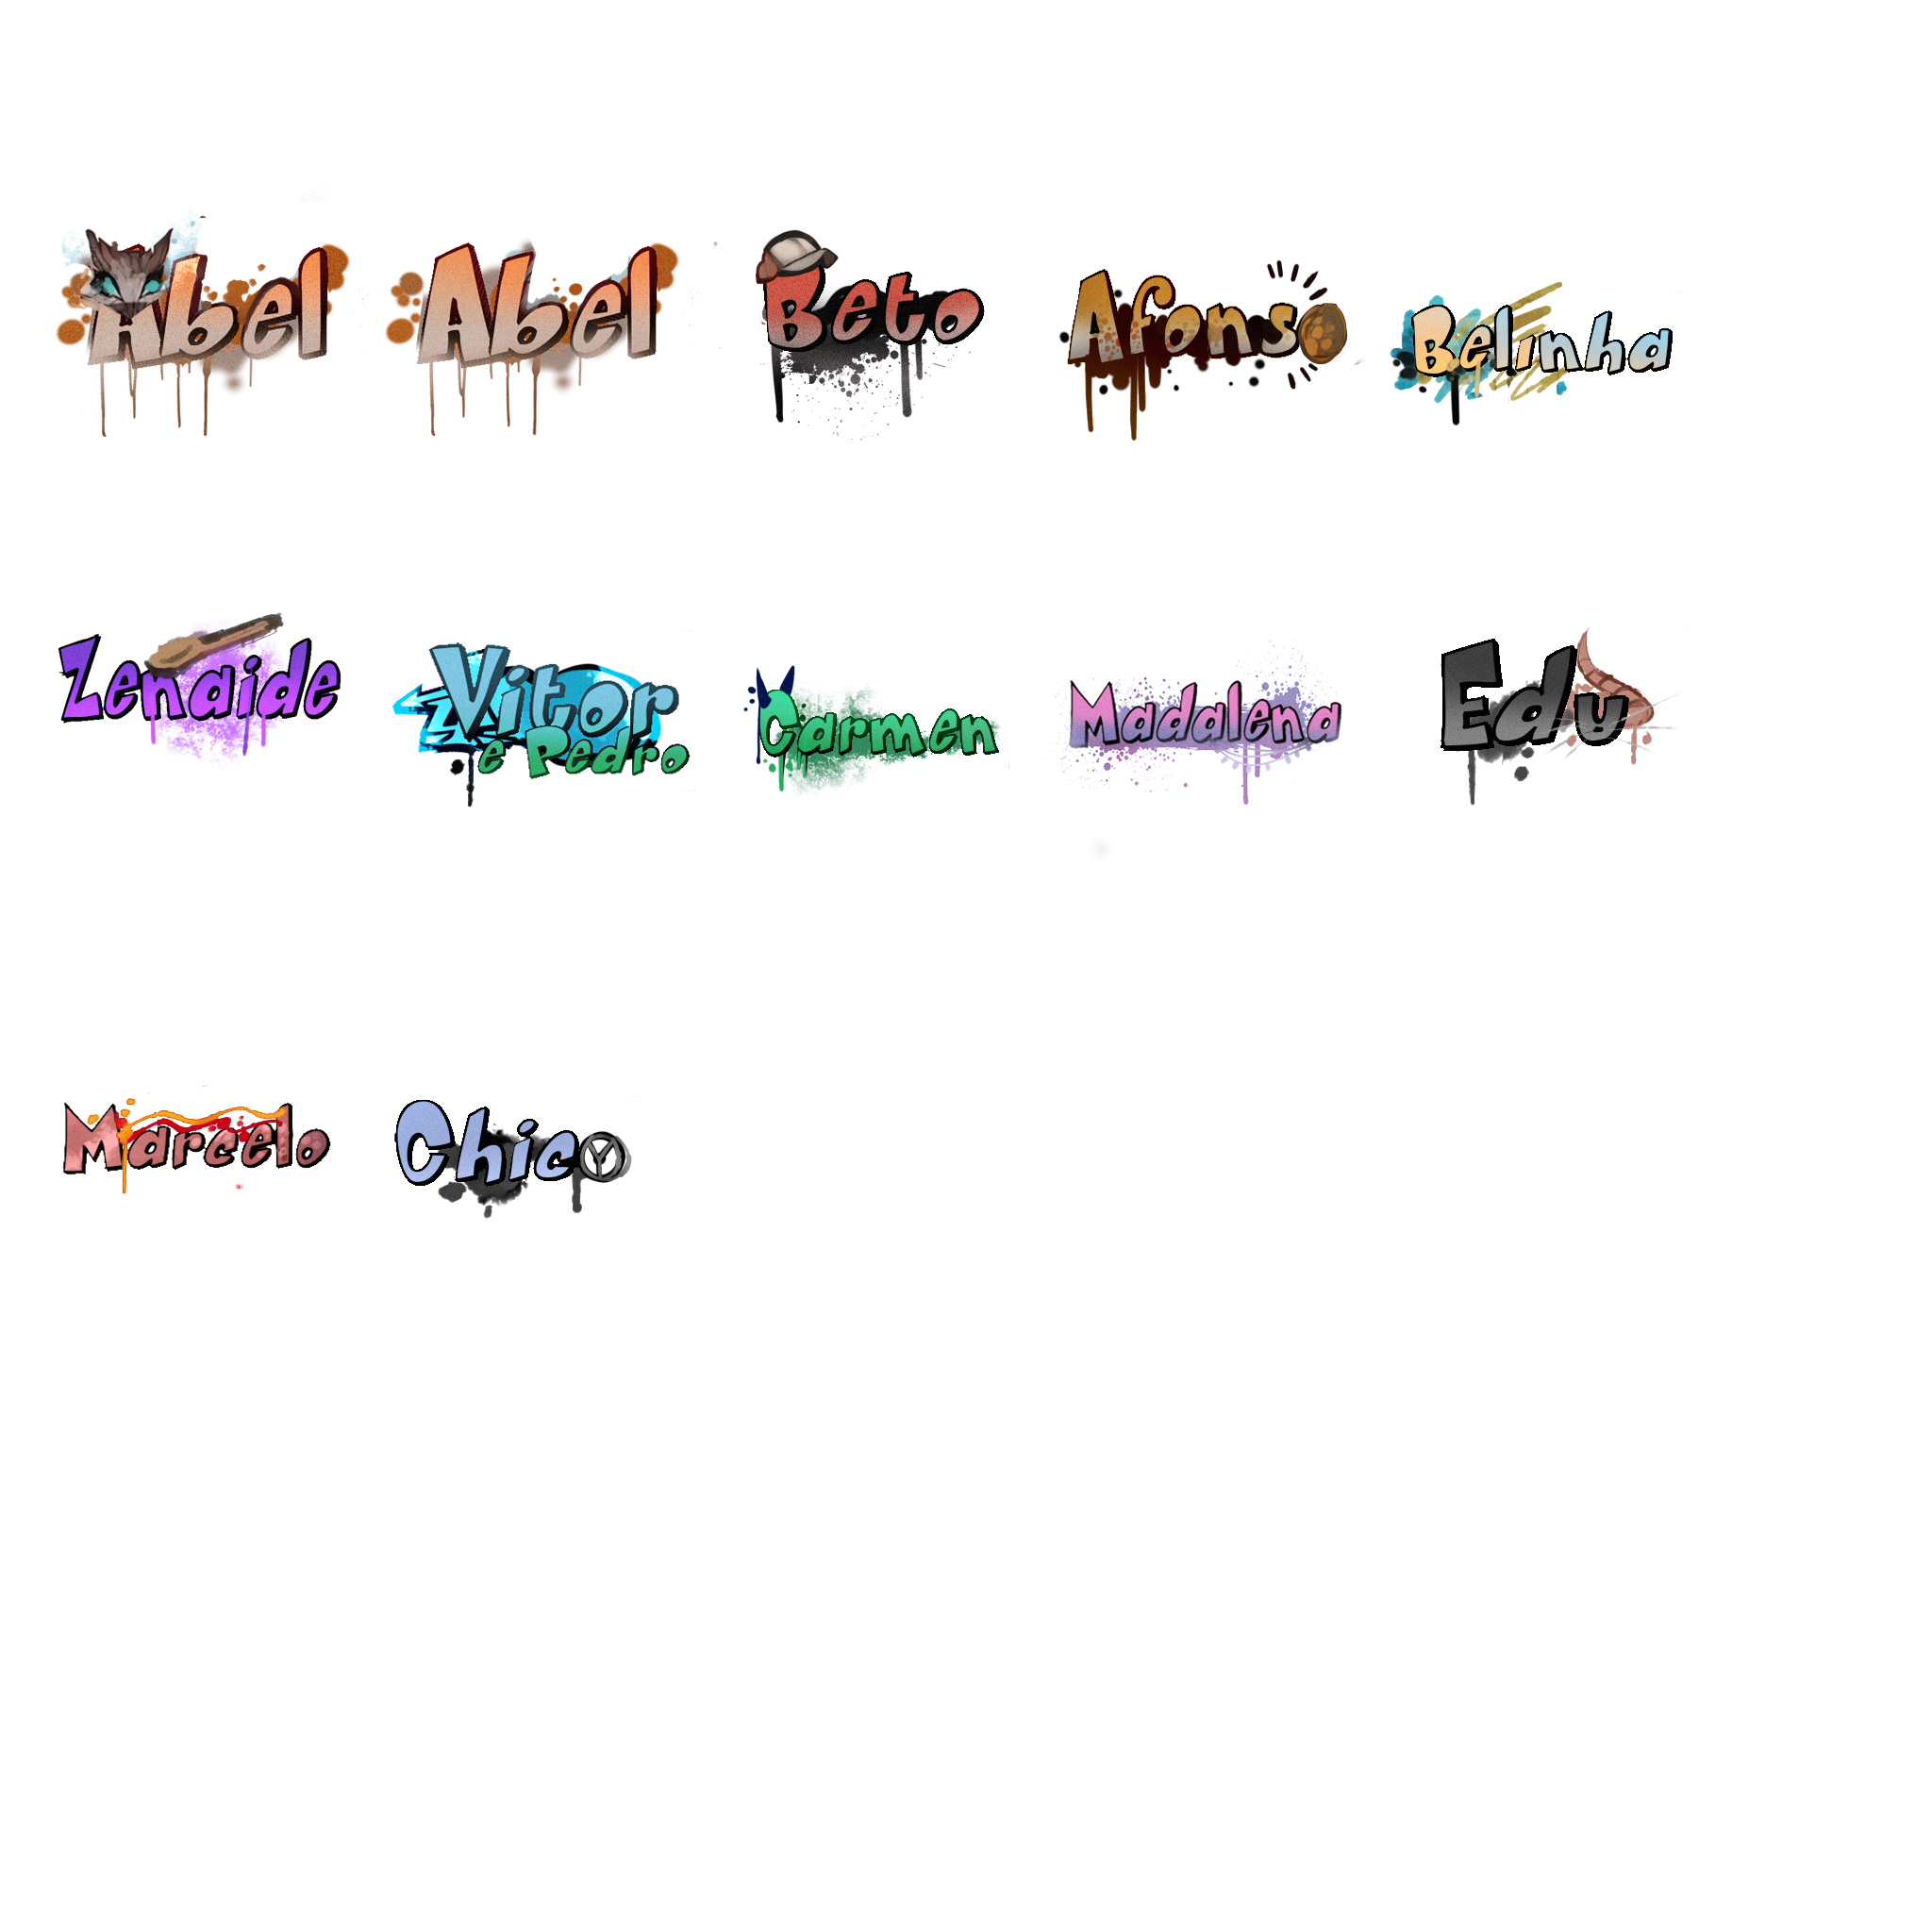 Abel
Abel
Beto
Afonso
Belinha
Zenaide
Vitor
e Pedro
Carmen
Madalena
Edu
Marcelo
Chico